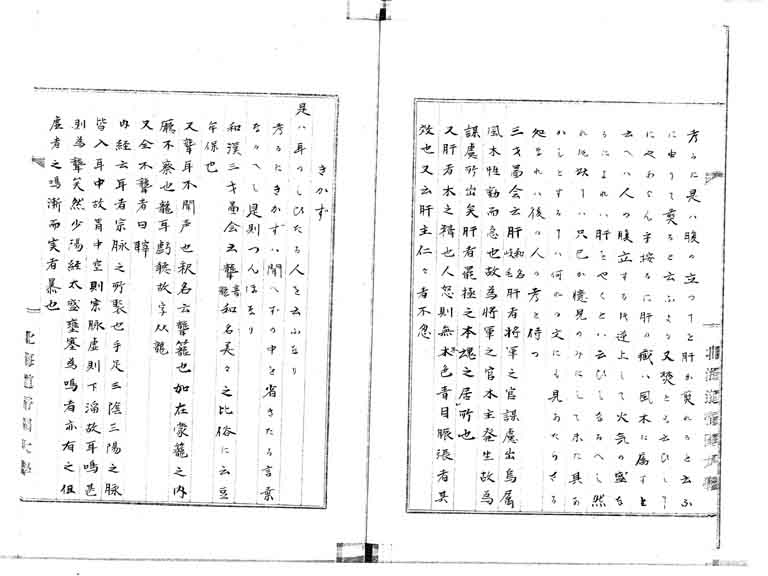 考るに是ハ腹の立つヿを肝が煎れると云ふ
に由りて煎ると云ふより又焚とも云ひして
にやあらん手按るに肝の蔵ハ風木に属すと
云へハ人の腹立する時逆上して火気の盛な
るによれハ肝をやくとハ云ひしなるへし然
れ此ハ只己か憶見のみにして未た具
ハしとするハ何かの文にも見あたらさる
処なれハ後の人の考を待つ
三才圖会云肝和名岐毛肝者将軍之官謀慮出焉属
風木性動而急也故為将軍之官木主発生故為
謀慮所出矣肝者罷極之本魂之居所也
又肝者木之精也人怒則無不色青目脹張者其
效也又云肝主仁々者不忍
きかず
是ハ耳のしひたる人を云ふなり
考るにきかずハ聞へずの中を省きたる言葉
なるへし是則つんほなり
和漢三才圖会云聾音籠和名美々之比俗に云豆
牟保也
又聾耳不聞声也釈名云聾籠也如在蒙籠之内
聴不察也龍耳虧聴故字从龍
又全不聾者曰聹
内経云耳者宗脉之所聚也手足三陰三陽之脉
皆入耳中故胃中空則宗脉虚則下溜故耳鳴甚
則為聾矣然少陽経太盛壅塞為鳴者亦有之但
虚者之鳴漸而実者暴也
北海道帝國大學